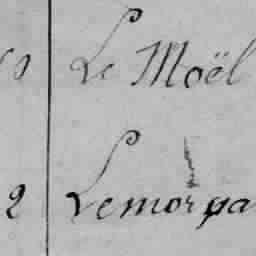 Le Moël
2 Lemorpa